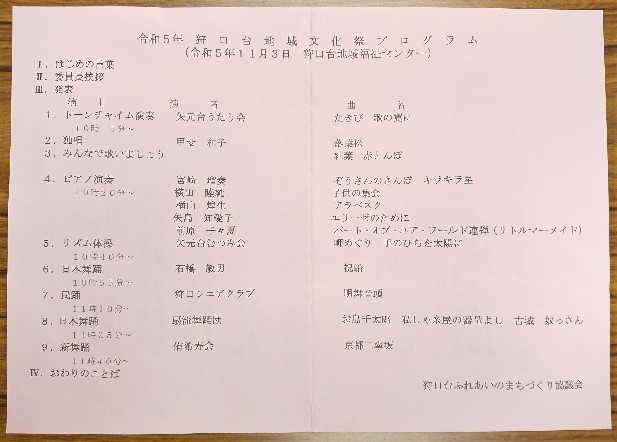 令和5年 狩口台地域文化祭プログラム
(令和5年11月3日 狩口台地域福祉センター)
Ⅰ. はじめの言葉
Ⅱ. 委員長挨拶
Ⅲ. 発表
演 名 曲 名
1. トーンチャイム演奏 矢元台うたう会 たきび 歌の翼に
10時 5分~
2. 独唱 和子 落葉松
3. みんなで歌いましょう 紅葉 赤とんぼ
4. ピアノ演奏 宮崎 瑠奏 ぞうさんのさんぽ キラキラ星
10時20分~ 横山 睦純 子供の集会
横山 煌生 アラベスク
矢島 知穂子 エリーゼのために
前原 千々夏 パート・オブ・ユア・ワールド連弾(リトルマーメイド)
5. リズム体操 矢元台つつみ会 岬めぐり 手のひらを太陽に
10時40分~
6. 日本舞踊 石橋 祝船
10時55分~
7. 民踊 狩口シニアクラブ 明舞音頭
11時10分~
8. 日本舞踊 扇舞踊団 お島千太郎 私しゃ糸屋の器量よし 古城 奴っさん
11時25分~
9. 新舞踊 侑希寿会 京都二寧坂
11時40分~
Ⅳ. おわりのことば
狩口台ふれあいのまちづくり協議会